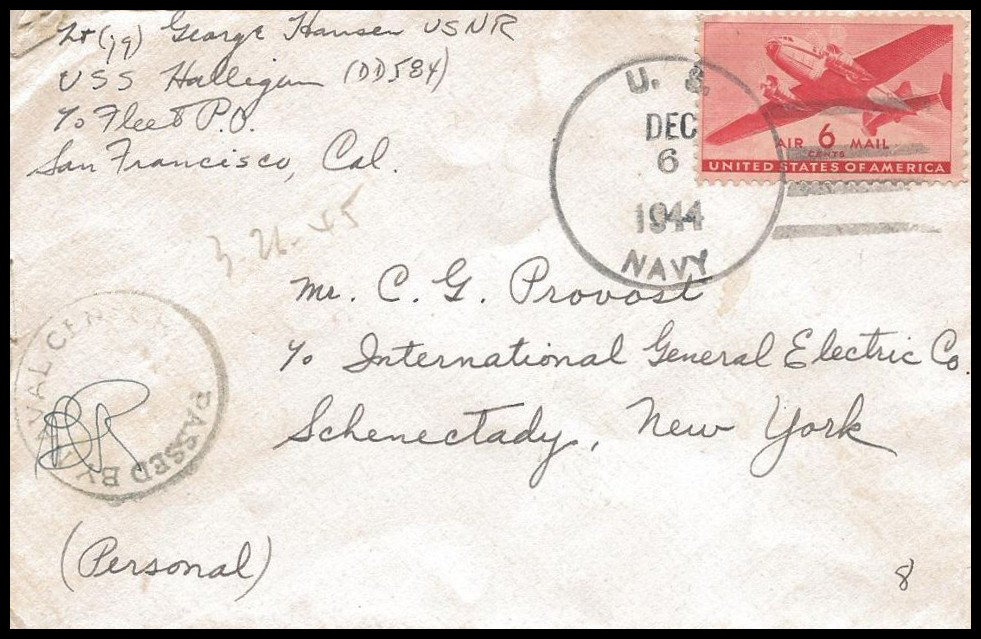 Lt (jg) George Hansen USNR
USS Halligan (DD584)
c/o Fleet P.O.
San Francisco, Cal.
U. S.
DEC
6
1944
NAVY
AIR 6 MAIL
CENTS
UNITED STATES OF AMERICA
3-26-45
Mr. C. G. Provost
c/o International General Electric Co.
Schenectady, New York
PASSED BY
NAVAL CENSOR
(Personal)
8